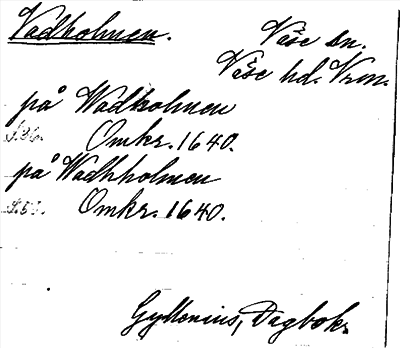 Vadholmen. Väse sn.
Väse hd. Vrm.
på Wadholmen
S.36. Omkr. 1640.
på Wadhholmen
Omkr. 1640.
Gyllenius, Dagbok.